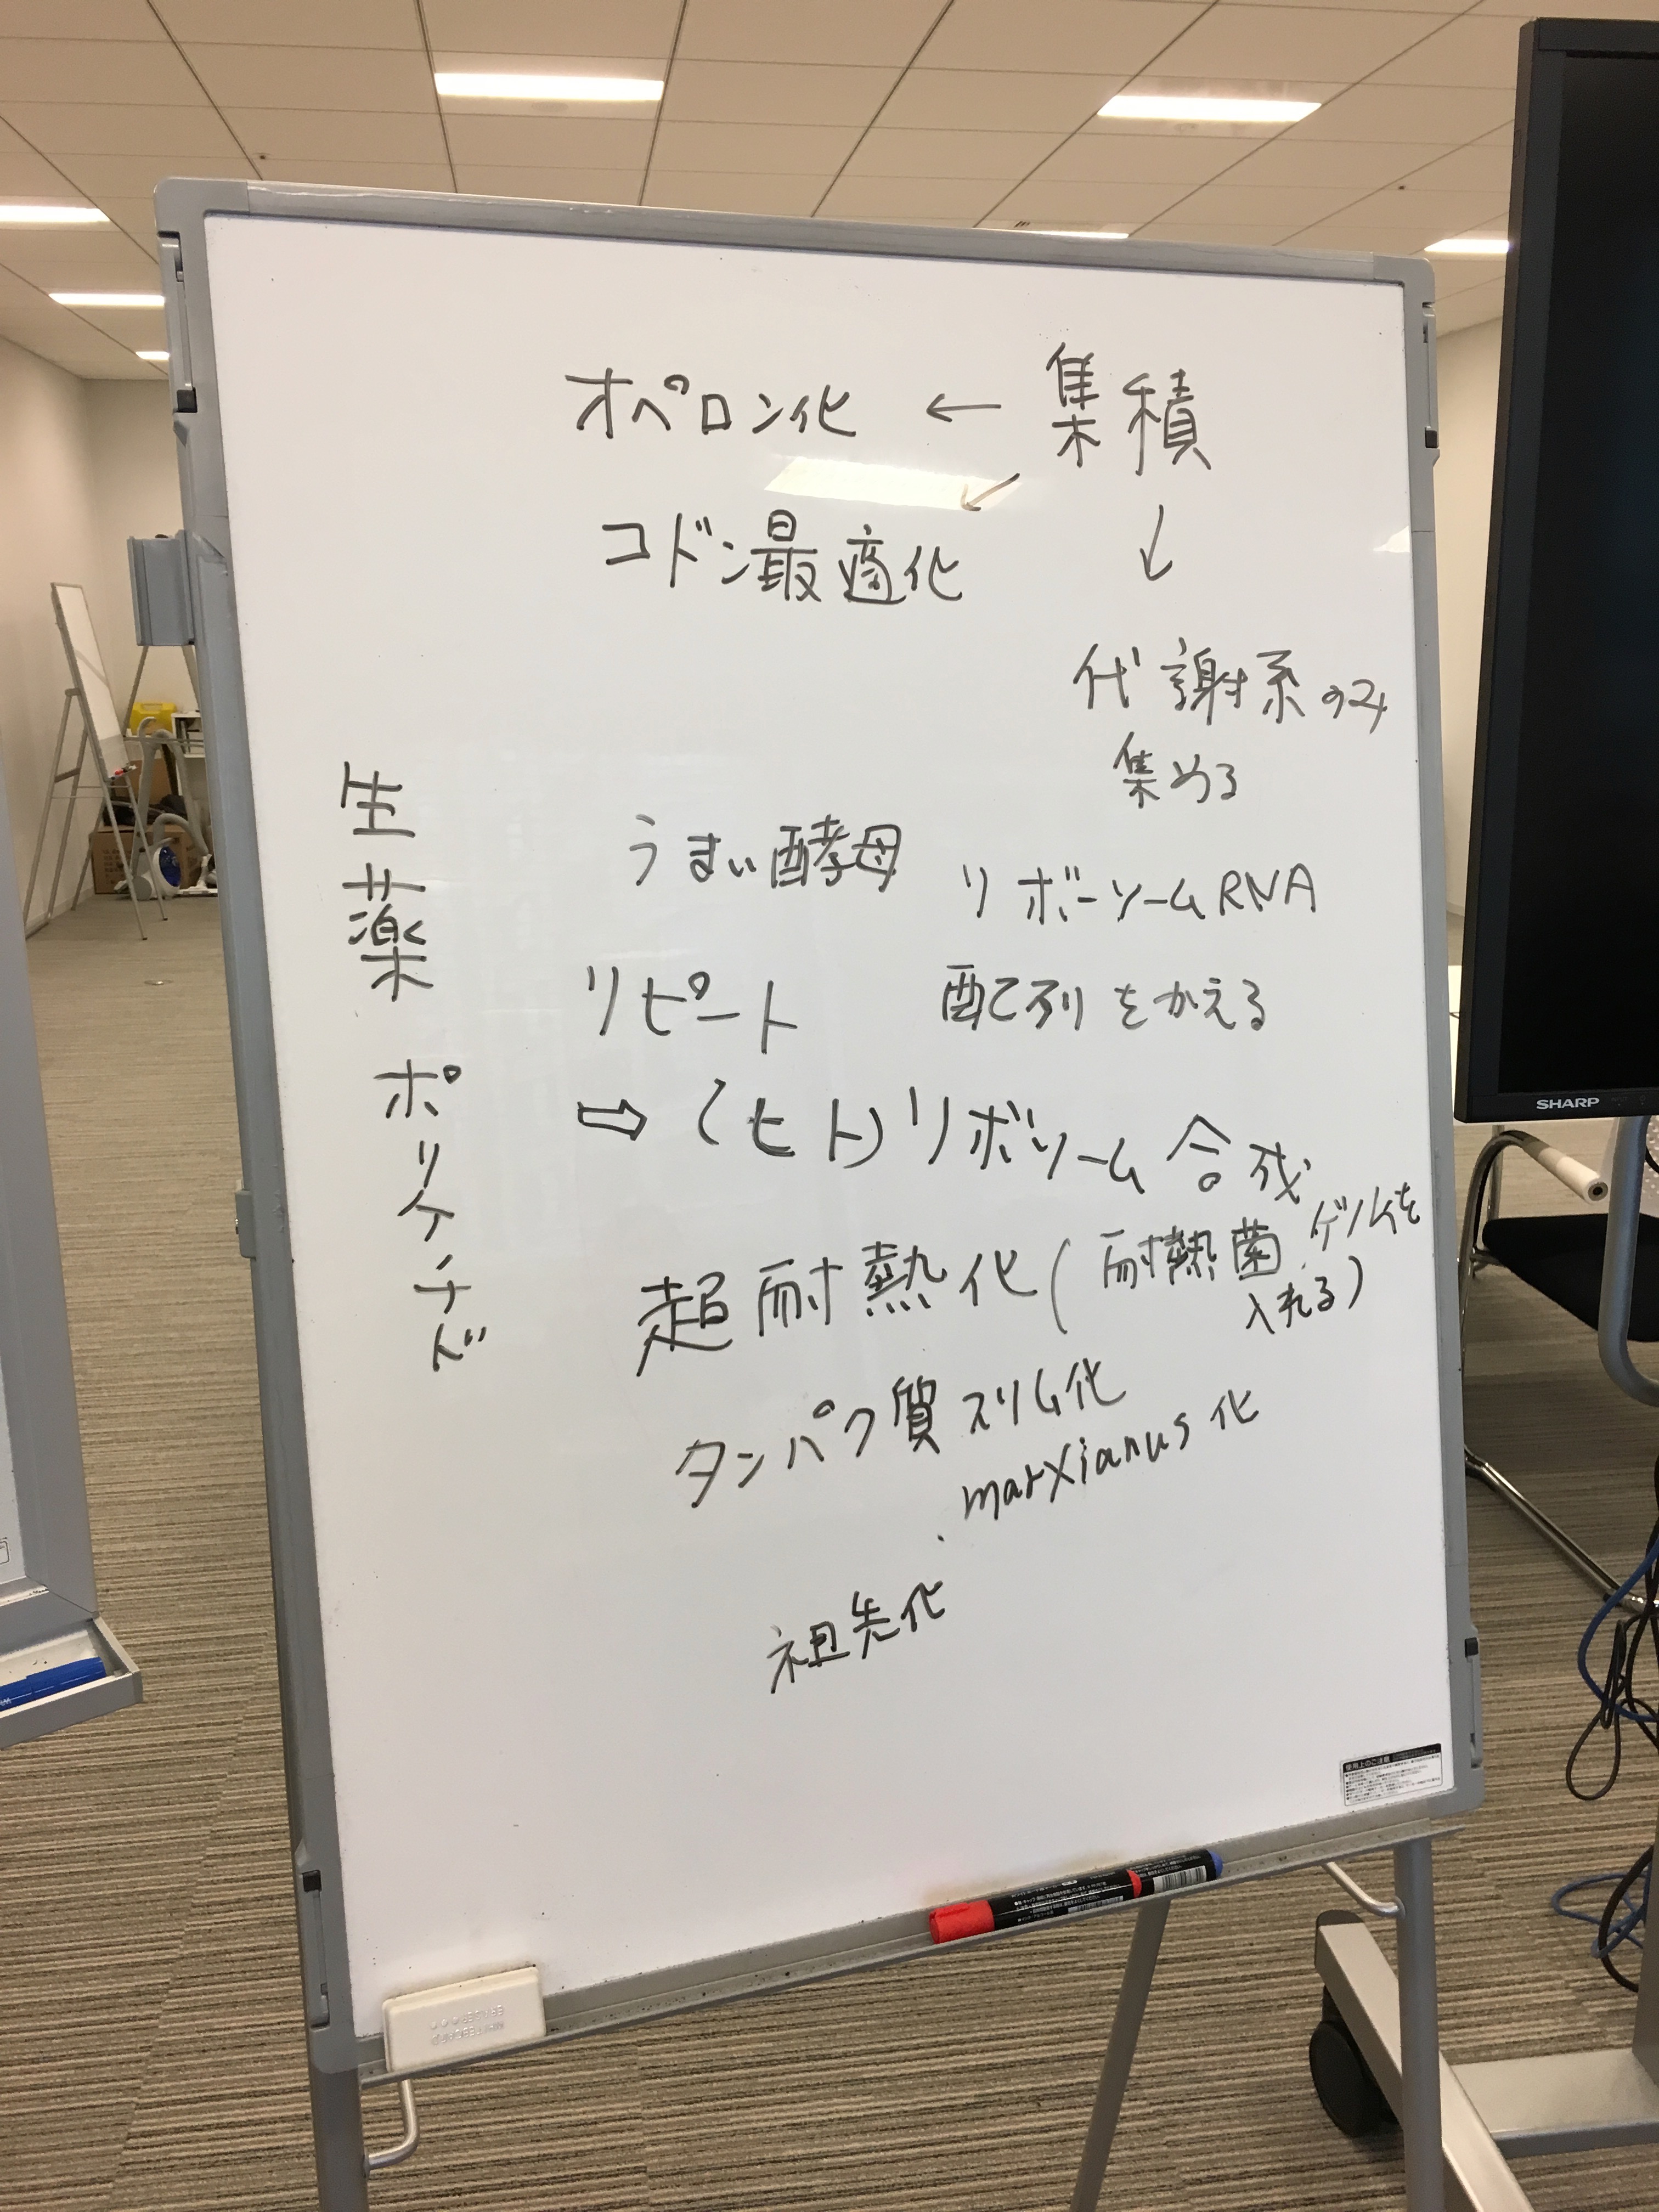 オペロン化 ← 集積
↙ ↓
コドン最適化
代謝系のみ
集める
うまい酵母
リボーソームRNA
リピート
配列をかえる
⇨ (ヒト)リボソーム合成
超耐熱化(耐熱菌ゲノムを
入れる)
タンパク質スリム化
marxianus化
祖先化
生薬 ポリケチド
SHARP
使用上のご注意